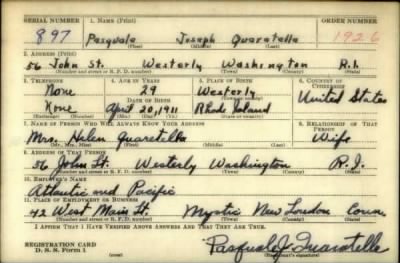 SERIAL NUMBER 1. NAME (Print) ORDER NUMBER
897 Pasquale Joseph Quaratella 1926
(First) (Middle) (Last)
2. ADDRESS (Print)
56 John St. Westerly Washington R.I.
(Number and street or R. F. D. number) (Town) (County) (State)
3. TELEPHONE 4. AGE IN YEARS 5. PLACE OF BIRTH 6. COUNTRY OF CITIZENSHIP
None 29 Westerly
DATE OF BIRTH United States
None April 20, 1911 Rhode Island
(Exchange) (Number) (Mo.) (Day) (Yr.) (State or country)
7. NAME OF PERSON WHO WILL ALWAYS KNOW YOUR ADDRESS 8. RELATIONSHIP OF THAT PERSON
Mrs. Helen Quaratella Wife
(Mr., Mrs., Miss) (First) (Middle) (Last)
9. ADDRESS OF THAT PERSON
56 John St. Westerly Washington R.I.
(Number and street or R. F. D. number) (Town) (County) (State)
10. EMPLOYER'S NAME
Atlantic and Pacific
11. PLACE OF EMPLOYMENT OR BUSINESS
42 West Main St Mystic New London Conn.
(Number and street or R. F. D. number) (Town) (County) (State)
I AFFIRM THAT I HAVE VERIFIED ABOVE ANSWERS AND THAT THEY ARE TRUE.
REGISTRATION CARD
D. S. S. Form 1 Pasquale J. Quaratella
(Registrant's signature)